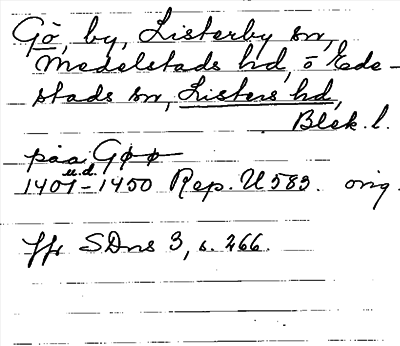 Gö, by, Listerby sn,
Medelstads hd, o Ede-
stads sn, Listers hd,
Blek. l.
paa Gøø
u.d.
1401-1450 Rep. U 583. orig.
Jfr SDns 3, s. 266.